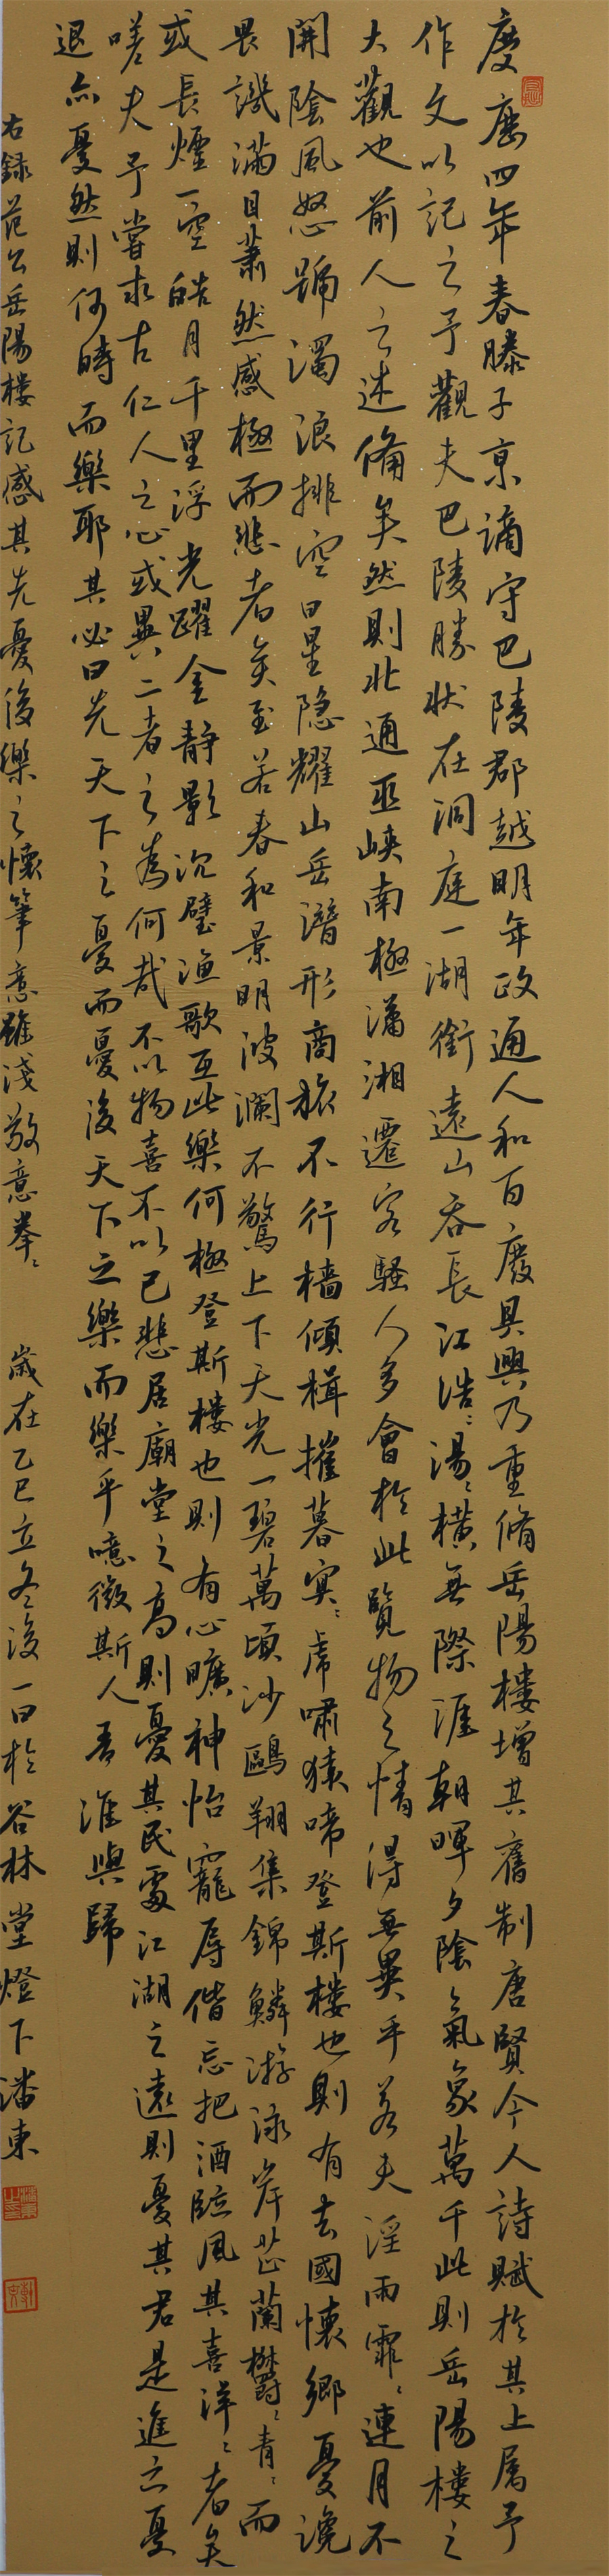 慶曆四年春滕子京謫守巴陵郡越明年政通人和百廢具興乃重脩岳陽樓增其舊制唐賢今人詩賦於其上屬予
作文以記之予觀夫巴陵勝狀在洞庭一湖銜遠山吞長江浩〻湯〻橫無際涯朝暉夕陰氣象萬千此則岳陽樓之
大觀也前人之述備矣然則北通巫峽南極瀟湘遷客騷人多會於此覽物之情得無異乎若夫淫雨霏〻連月不
開陰風怒號濁浪排空日星隱耀山岳潛形商旅不行檣傾楫摧暮冥〻虎嘯猿啼登斯樓也則有去國懷鄉憂讒
畏譏滿目蕭然感極而悲者矣至若春和景明波瀾不驚上下天光一碧萬頃沙鷗翔集錦鱗游泳岸芷蘭鬱〻青〻而
或長煙一空皓月千里浮光躍金靜影沉璧漁歌互此樂何極登斯樓也則有心曠神怡寵辱偕忘把酒臨風其喜洋〻者矣
嗟夫予嘗求古仁人之心或異二者之為何哉不以物喜不以己悲居廟堂之高則憂其民處江湖之遠則憂其君是進亦憂
退亦憂然則何時而樂耶其必曰先天下之憂而憂後天下之樂而樂乎噫微斯人吾誰與歸
右錄范公岳陽樓記感其先憂後樂之懷筆意雖淺敬意拳〻 歲在乙巳立冬後一日於谷林堂燈下潘東